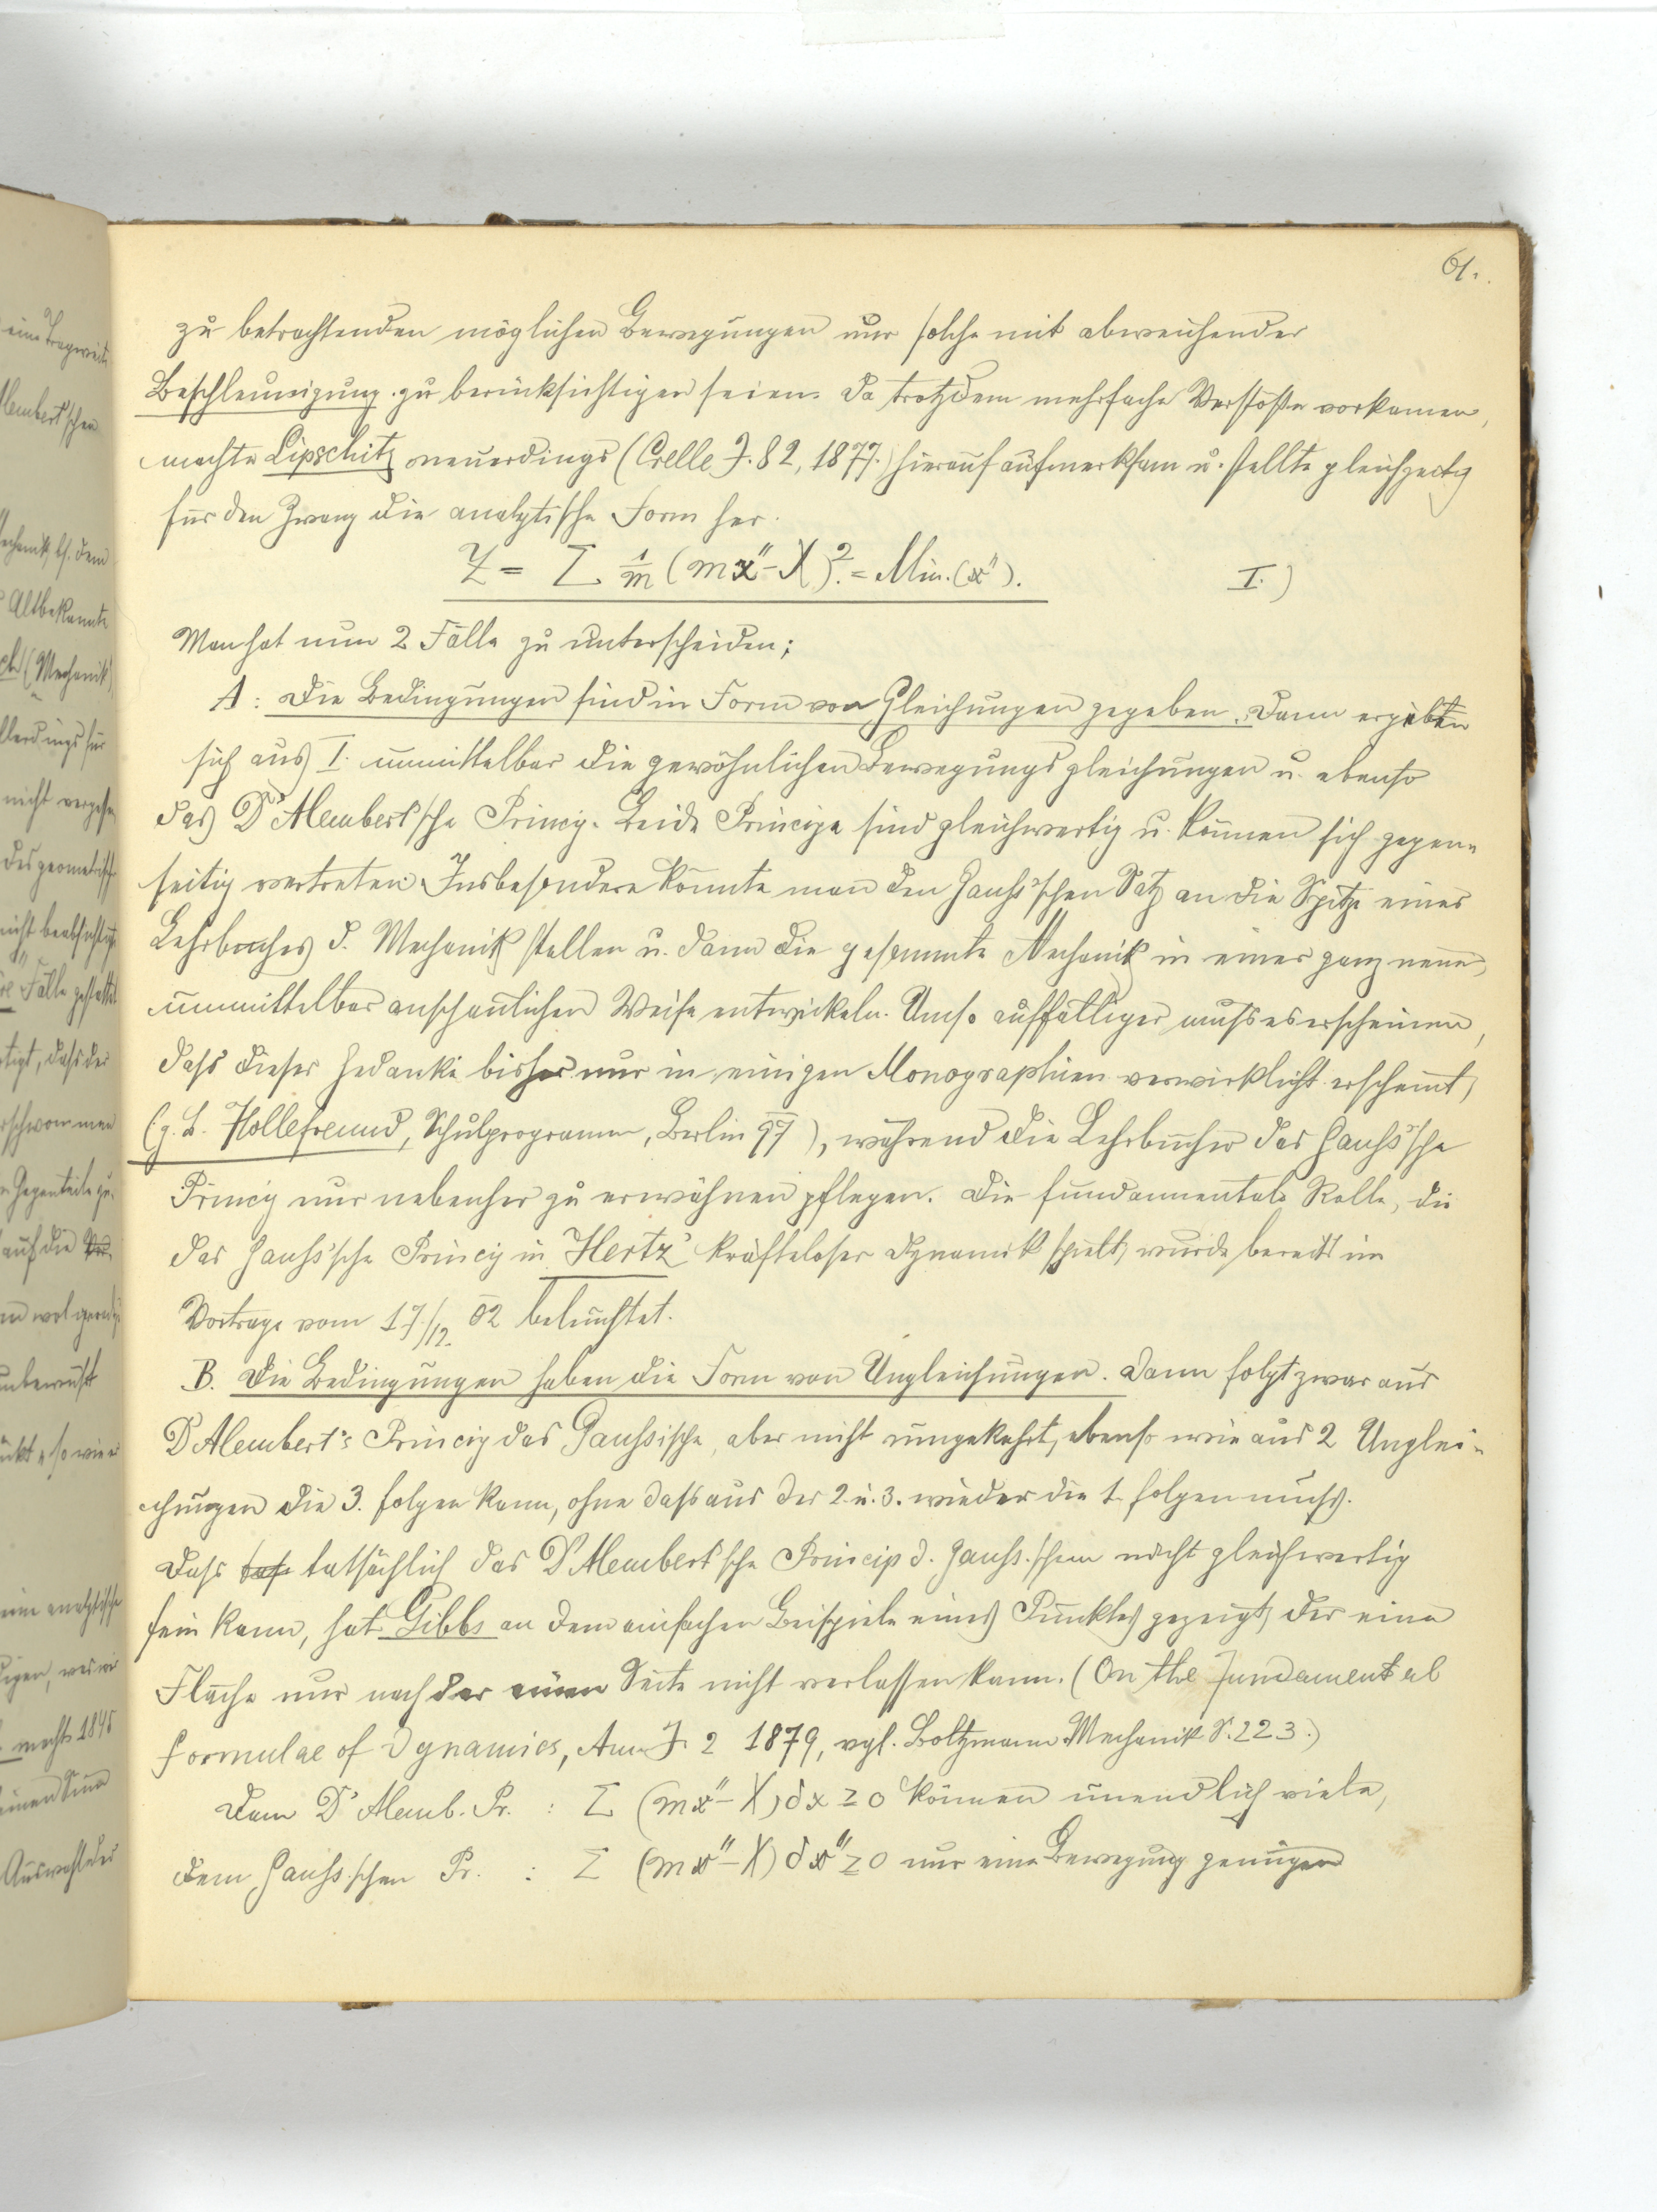 61.
zu betrachtenden möglichen Bewegungen nur solche mit abweichender
Beschleunigung zu berücksichtigen seien. Da trotzdem mehrfache Verstöße vorkamen,
machte Lipschitz neuerdings (Crelle J. 82, 1877.) hierauf aufmerksam u. stellte gleichzeitig
für den Zwang die analytische Form her.
Z = Σ 1/m (mx″ - X)². = Min. (x″). I.)
Man hat nun 2 Fälle zu unterscheiden;
A: Die Bedingungen sind in Form von Gleichungen gegeben. Dann ergeben
sich aus I. unmittelbar die gewöhnlichen Bewegungsgleichungen u. ebenso
das D'Alembert'sche Princip. Beide Principe sind gleichwertig u. können sich gegen-
seitig vertreten. Insbesondere könnte man den Gauß'schen Satz an die Spitze eines
Lehrbuches d. Mechanik stellen u. dann die gesammte Mechanik in einer ganz neuen,
unmittelbar anschaulichen Weise entwickeln. Umso auffälliger muß es erscheinen,
daß dieser Gedanke bisher nur in einigen Monographien verwirklicht erscheint,
(z. B. Hollefreund, Schulprogramm, Berlin 97), während die Lehrbücher das Gauß'sche
Princip nur nebenher zu erwähnen pflegen. Die fundamentale Rolle, die
das Gauß'sche Princip in Hertz' kräfteloser Dynamik spielt, wurde bereits im
Vortrage vom 17./12. 02 beleuchtet.
B. Die Bedingungen haben die Form von Ungleichungen. Dann folgt zwar aus
D'Alembert's Princip das Gaußische, aber nicht umgekehrt, ebenso wie aus 2 Unglei-
chungen die 3. folgen kann, ohne daß aus der 2. u. 3. wieder die 1. folgen muß.
Daß tatsächlich das D'Alembert'sche Princip d. Gauß.schen nicht gleichwertig
sein kann, hat Gibbs an dem einfachen Beispiele eines Punktes gezeigt, der eine
Fläche nur nach der einen Seite nicht verlassen kann. (On the Fundamental
formulae of Dynamics, Am. J. 2 1879, vgl. Boltzmann Mechanik S. 223.)
Dem D'Alemb. Pr. : Σ (mx″ - X) δx ≥ 0 können unendlich viele,
dem Gauß.schen Pr. : Σ (mx″ - X) δx″ ≥ 0 nur eine Bewegung genügen